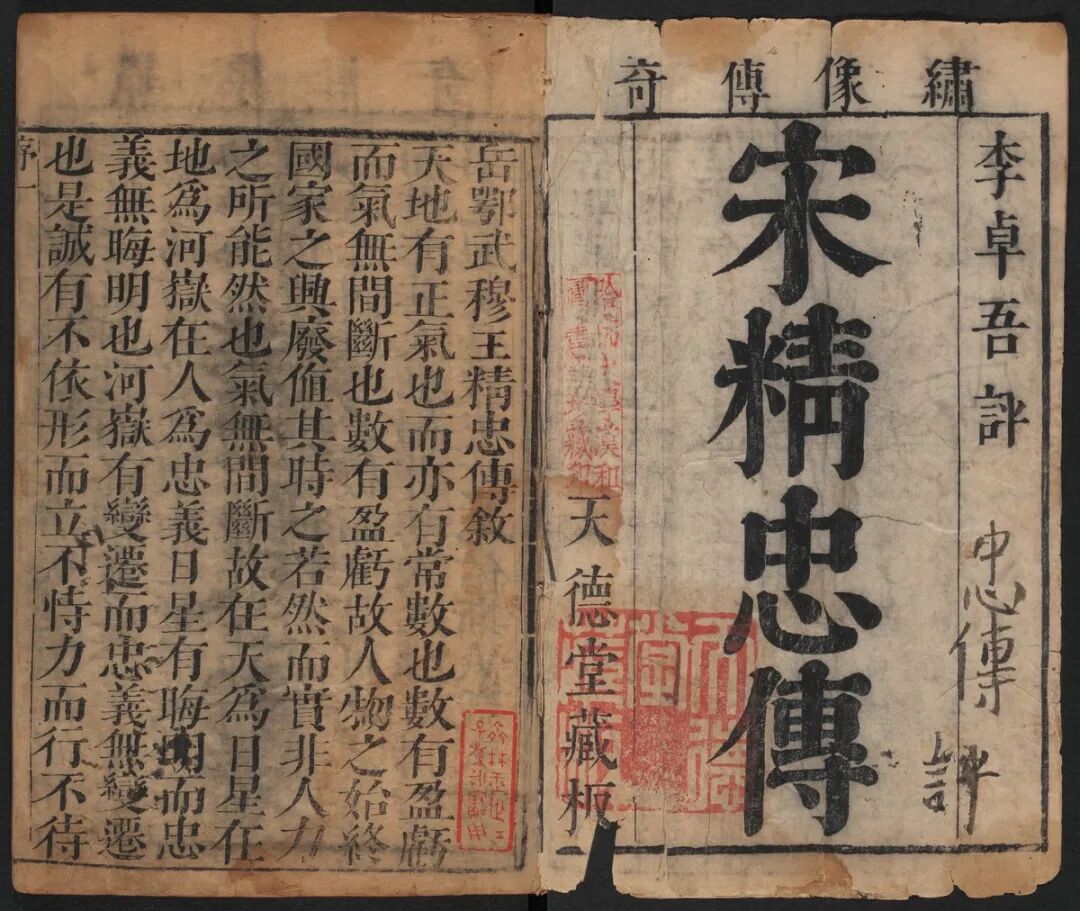 繡像傳奇
李卓吾評
忠傳
評
宋精忠傳
天德堂藏板
哈佛大學漢和
圖書館珍藏印
岳鄂武穆王精忠傳敘
天地有正氣也而亦有常數也數有盈虧
而氣無間斷也數有盈虧故人物之始終
國家之興廢値其時之若然而實非人力
之所能然也氣無間斷故在天為日星在
地爲河嶽在人爲忠義日星有晦明而忠
義無晦明也河嶽有變遷而忠義無變遷
也是誠有不依形而立不恃力而行不待
序一